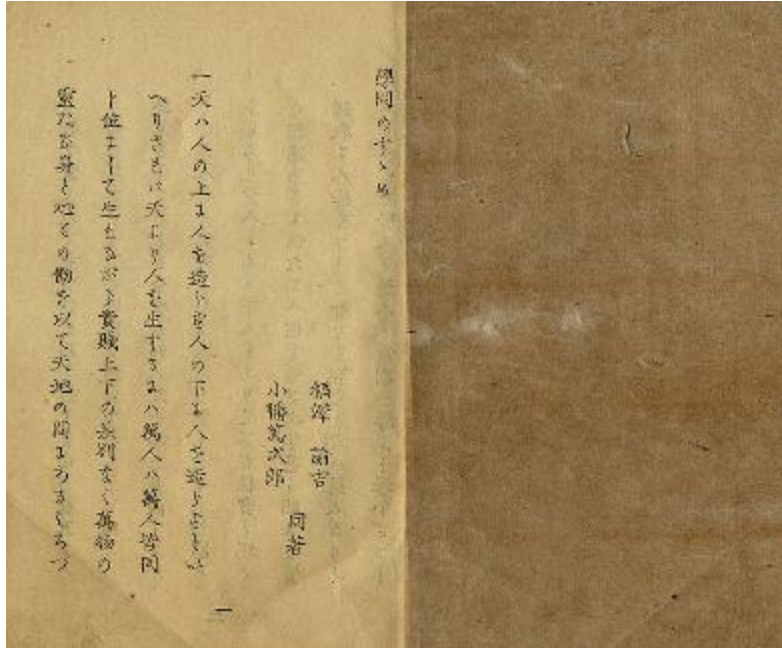 學問のすゝめ
福澤 諭吉
小幡篤次郎
同著
一天ハ人の上に人を造らず人の下に人を造らずとい
へりされば天より人を生ずるにハ萬人ハ萬人皆同
じ位にして生れながら貴賤上下の差別なく萬物の
靈たる身と心との働を以て天地の間にあるよろづ
一